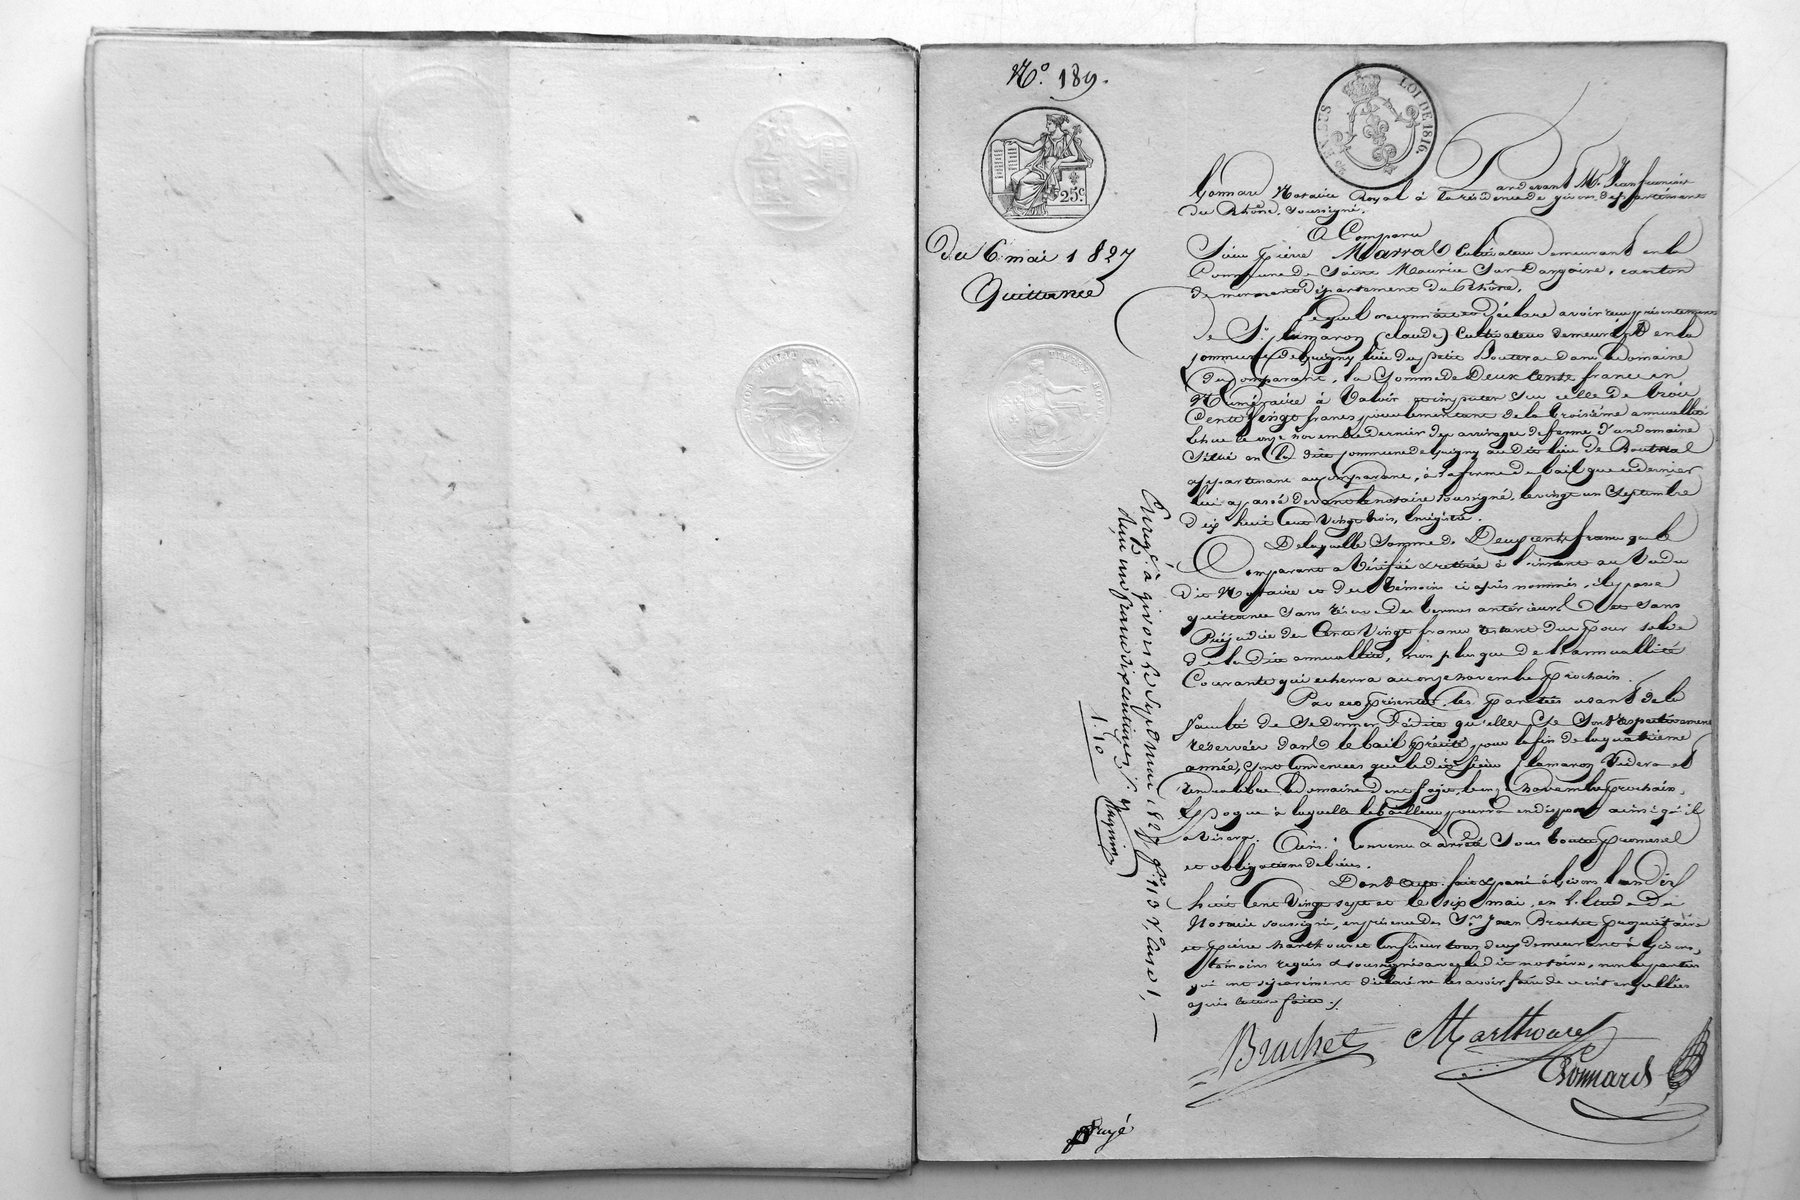 N.° 189.
LOI DE 1816.
EN SUS
25.c
du 6 mai 1827
Quittance
Pardevant M.e Jean françois
Connard Notaire Royal à la résidence de givors, département
du Rhône, soussigné.
A Comparu
Sieur pierre Marral Cultivateur demeurant en la
Commune de Saint Maurice Sur Dargoire, canton
de mornant département du Rhône.
Lequel reconnait et déclare avoir reçu présentement
de S.r (claude) Cultivateur demeurant en la
commune de lieu du petit dans le domaine
du Comparant, la Somme de Deux Cents francs en
Numéraire à Valoir et imputer Sur celle de trois
Cent Vingt francs pour le montant de la troisième annuallité
échue le onze novembre dernier des arrérages de ferme d'un domaine
Situé en la dite commune de au dit lieu de
appartenant au comparant, à la forme du bail que ce dernier
lui a passé devant le notaire soussigné, le vingt un Septembre
dix huit Cent Vingt trois, Enrégistré.
De laquelle Somme de Deux cents francs que le
Comparant a Vérifiée & retirée à l'instant au Vu du
dit Notaire et des témoins ci après nommés, il passe
quittance Sans réserve des termes antérieurs et Sans
Préjudice de Cent Vingt francs restant dus pour solde
de la dite annuallité, non plus que de l'annuallité
Courante qui écherra au onze novembre prochain.
Par ces présentes, les parties usant de la
faculté de Se donner Dédite qu'elles Se Sont respectivement
réservées dans le bail précité, pour la fin de la quatrième
année, sont Convenues que le dit Sieur Videra et
Rendra libre le domaine dont s'agit, le onze Novembre prochain,
Epoque à laquelle le bailleur pourra en disposer ainsi qu'il
avisera. Ainsi Convenu & arrêté Sous toutes promesses
et obligations de biens.
Dont acte: fait & passé à Givors l'an dix
huit Cent Vingt sept et le six mai, en l'Etude du
Notaire soussigné, en présence des S.rs Jean Brachet propriétaire
et pierre Marthouret tous deux demeurant à Givors,
témoins requis & soussignés avec le dit notaire, non les parties
qui ont séparément déclaré ne les avoir faire de ce fait enquises
après lecture faite ./.
Enreg.é à givors le Sept mai 1827 f.o 113 V.o Case 1,
reçu un franc dix centimes ./.
1-10
Brachet
Marthouret
Connard